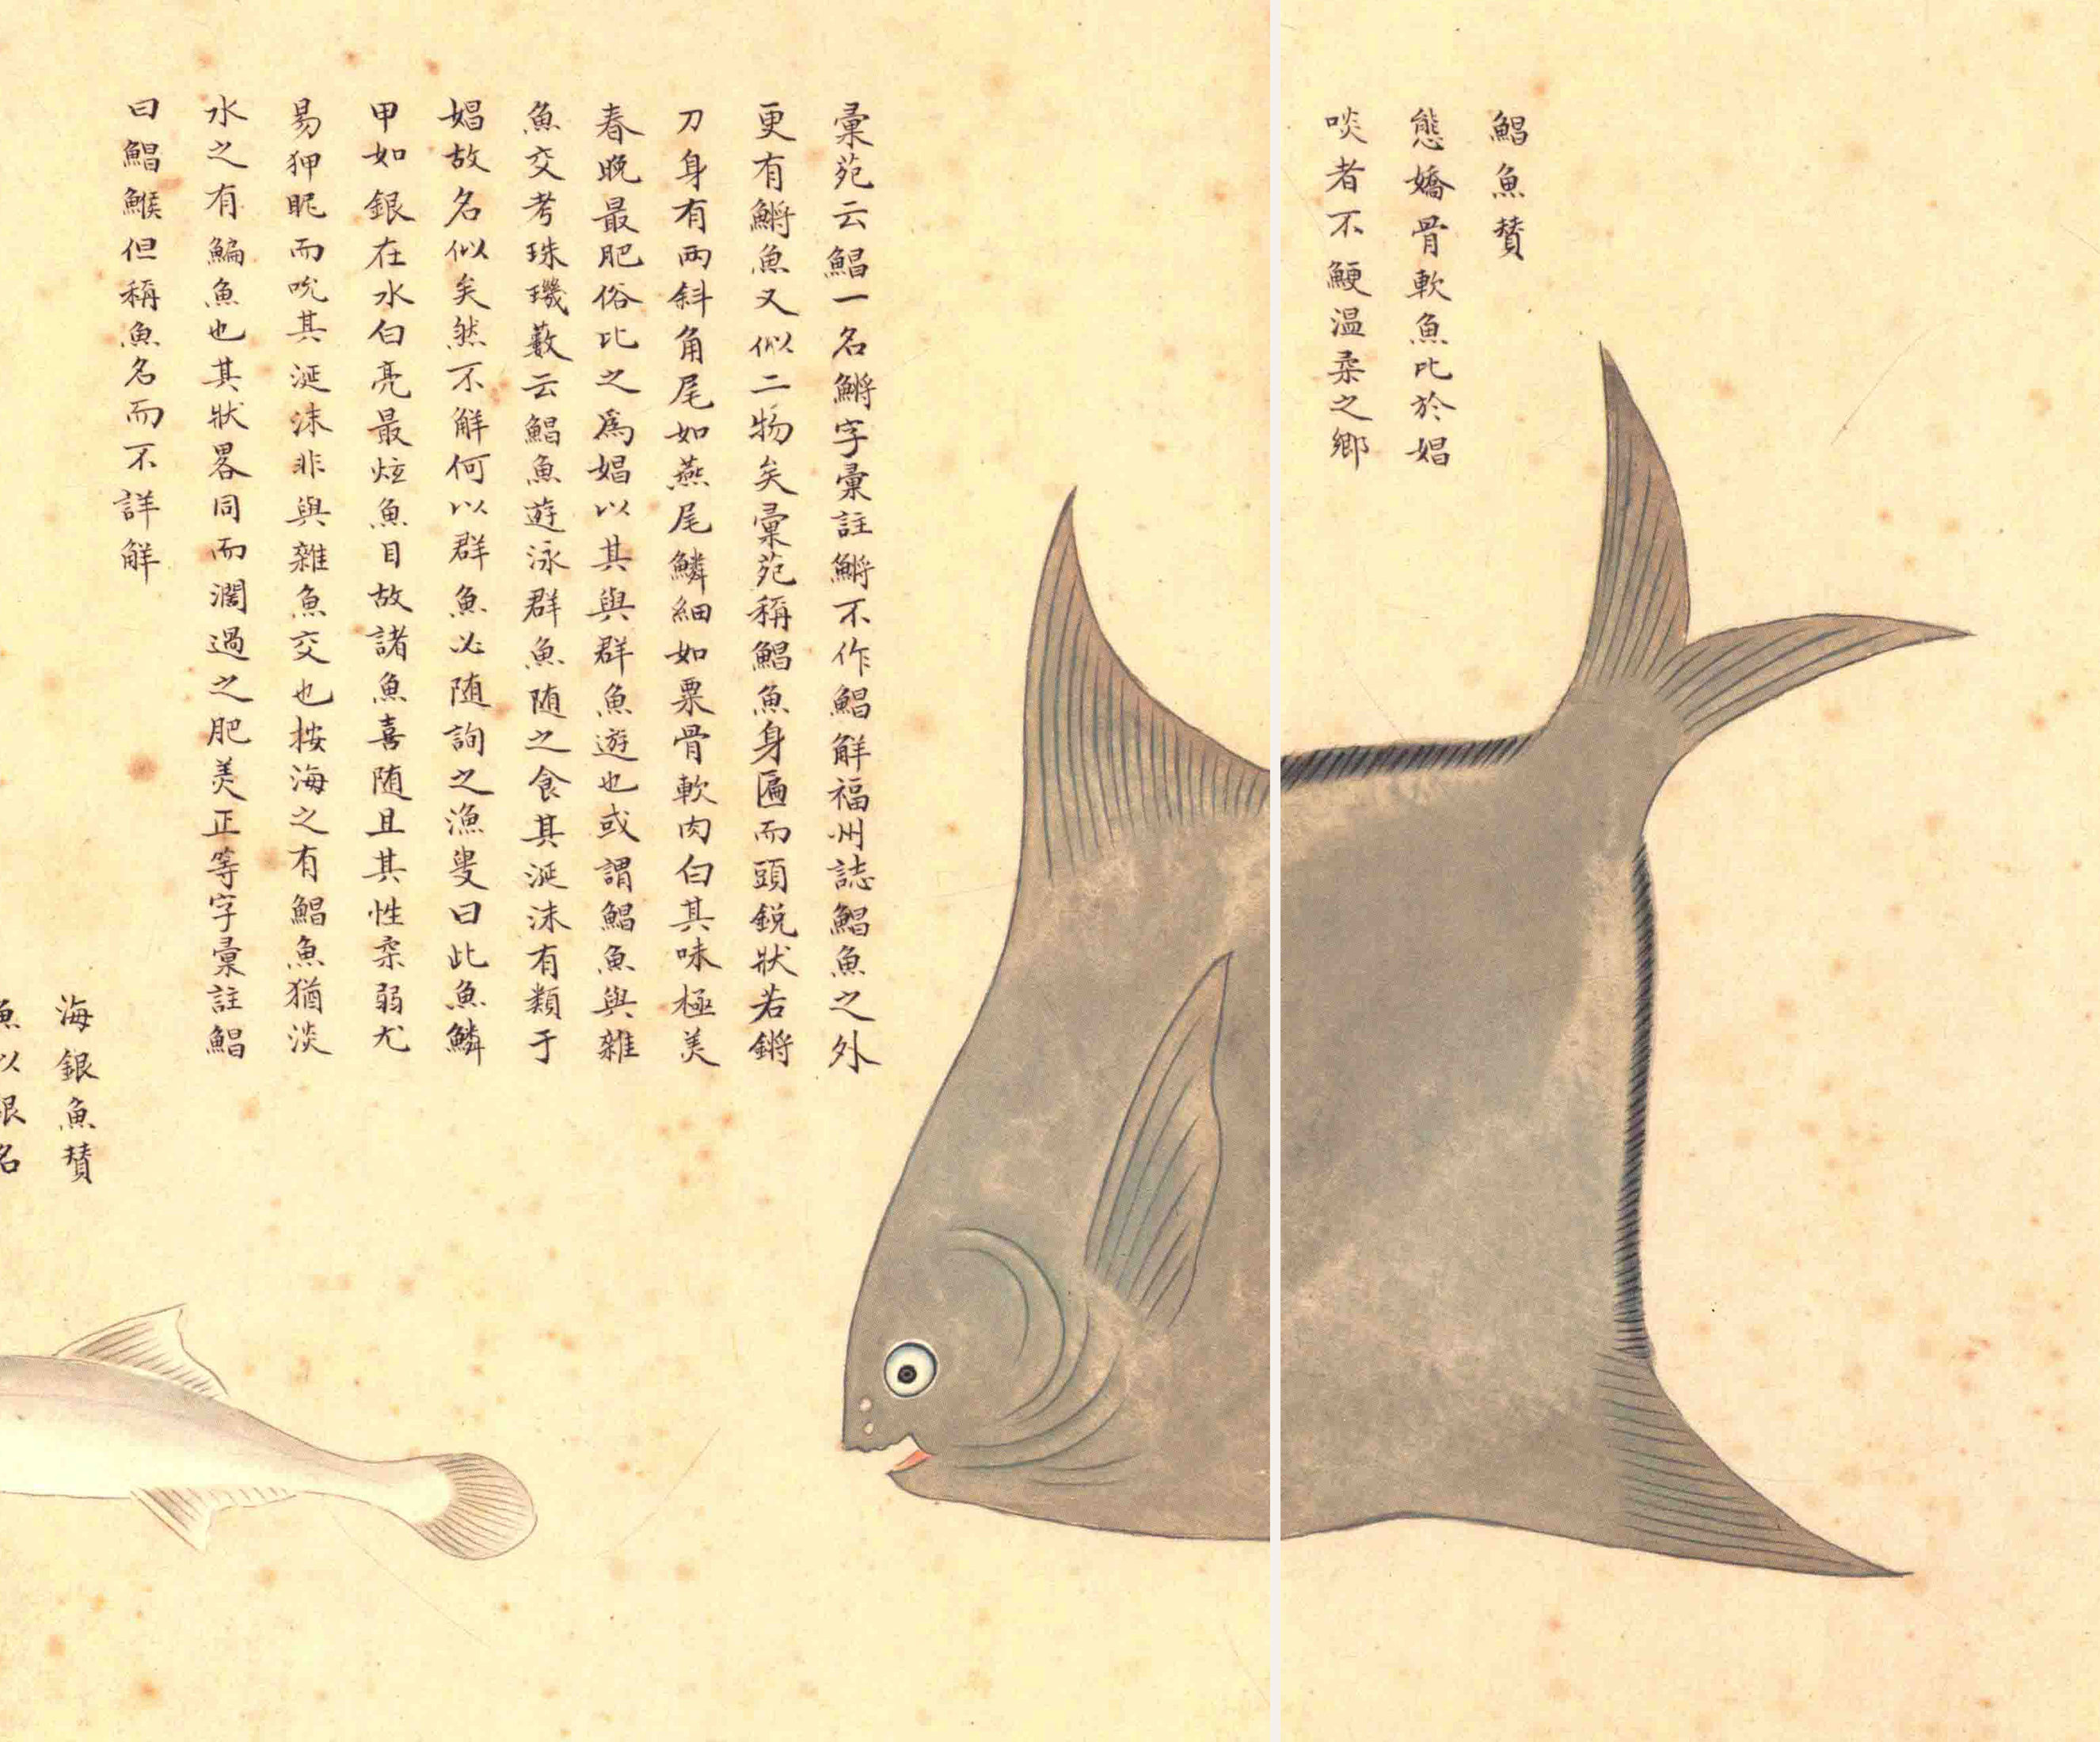 鯧魚賛
態嬌骨軟魚比於娼
啖者不鯁温柔之鄉
彙苑云鯧一名鱂字彙註鱂不作鯧解福州誌鯧魚之外
更有鱂魚又似二物矣彙苑稱鯧魚身匾而頭銳狀若鏘
刀身有两斜角尾如燕尾鱗細如粟骨軟肉白其味極美
春晚最肥俗比之為娼以其與群魚遊也或謂鯧魚與雜
魚交考珠璣藪云鯧魚遊泳群魚随之食其涎沫有類于
娼故名似矣然不解何以群魚必随詢之漁叟曰此魚鱗
甲如銀在水白亮最炫魚目故諸魚喜随且其性柔弱尤
易狎昵而吮其涎沫非與雜魚交也按海之有鯧魚猶淡
水之有鯿魚也其狀畧同而濶過之肥美正等字彙註鯧
曰鯧鯸但稱魚名而不詳解
海銀魚賛
魚以銀名